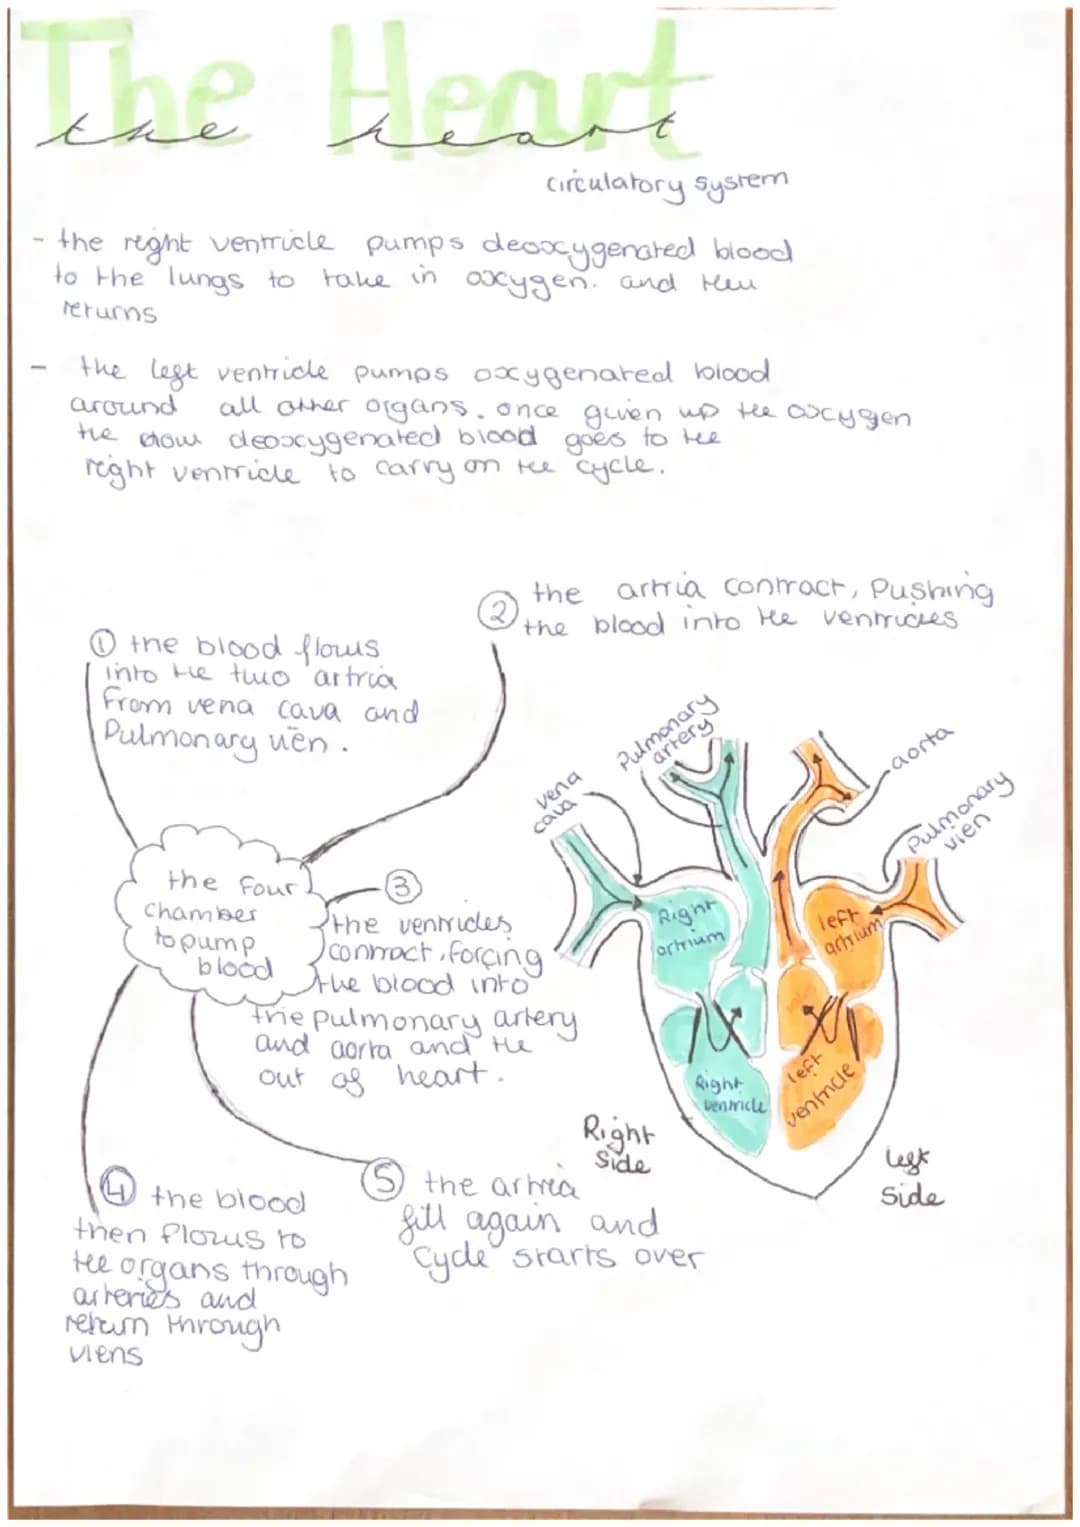 The Heart
the heart
circulatory system
- the right ventricle pumps deoxygenated blood
to the lungs to take in oxygen. and then
returns
- the left ventricle pumps oxygenated blood
around all other organs. once given up the oxygen
the now deoxygenated blood goes to the
right ventricle to carry on the cycle.
② the artria contract, Pushing
the blood into the ventricles
① the blood flows
into the two artria
from vena cava and
Pulmonary vien.
Pulmonary
artery
aorta
vena
cava
Pulmonary
vien
the four
chamber
to pump
blood
③
the ventricles
contract, forcing
the blood into
the pulmonary artery
and aorta and the
out of heart.
Right
artrium
left
artrium
Right
ventricle
left
ventricle
Right
Side
left
Side
④ the blood
then flows to
the organs through
arteries and
return through
viens
⑤ the artria
fill again and
cycle starts over